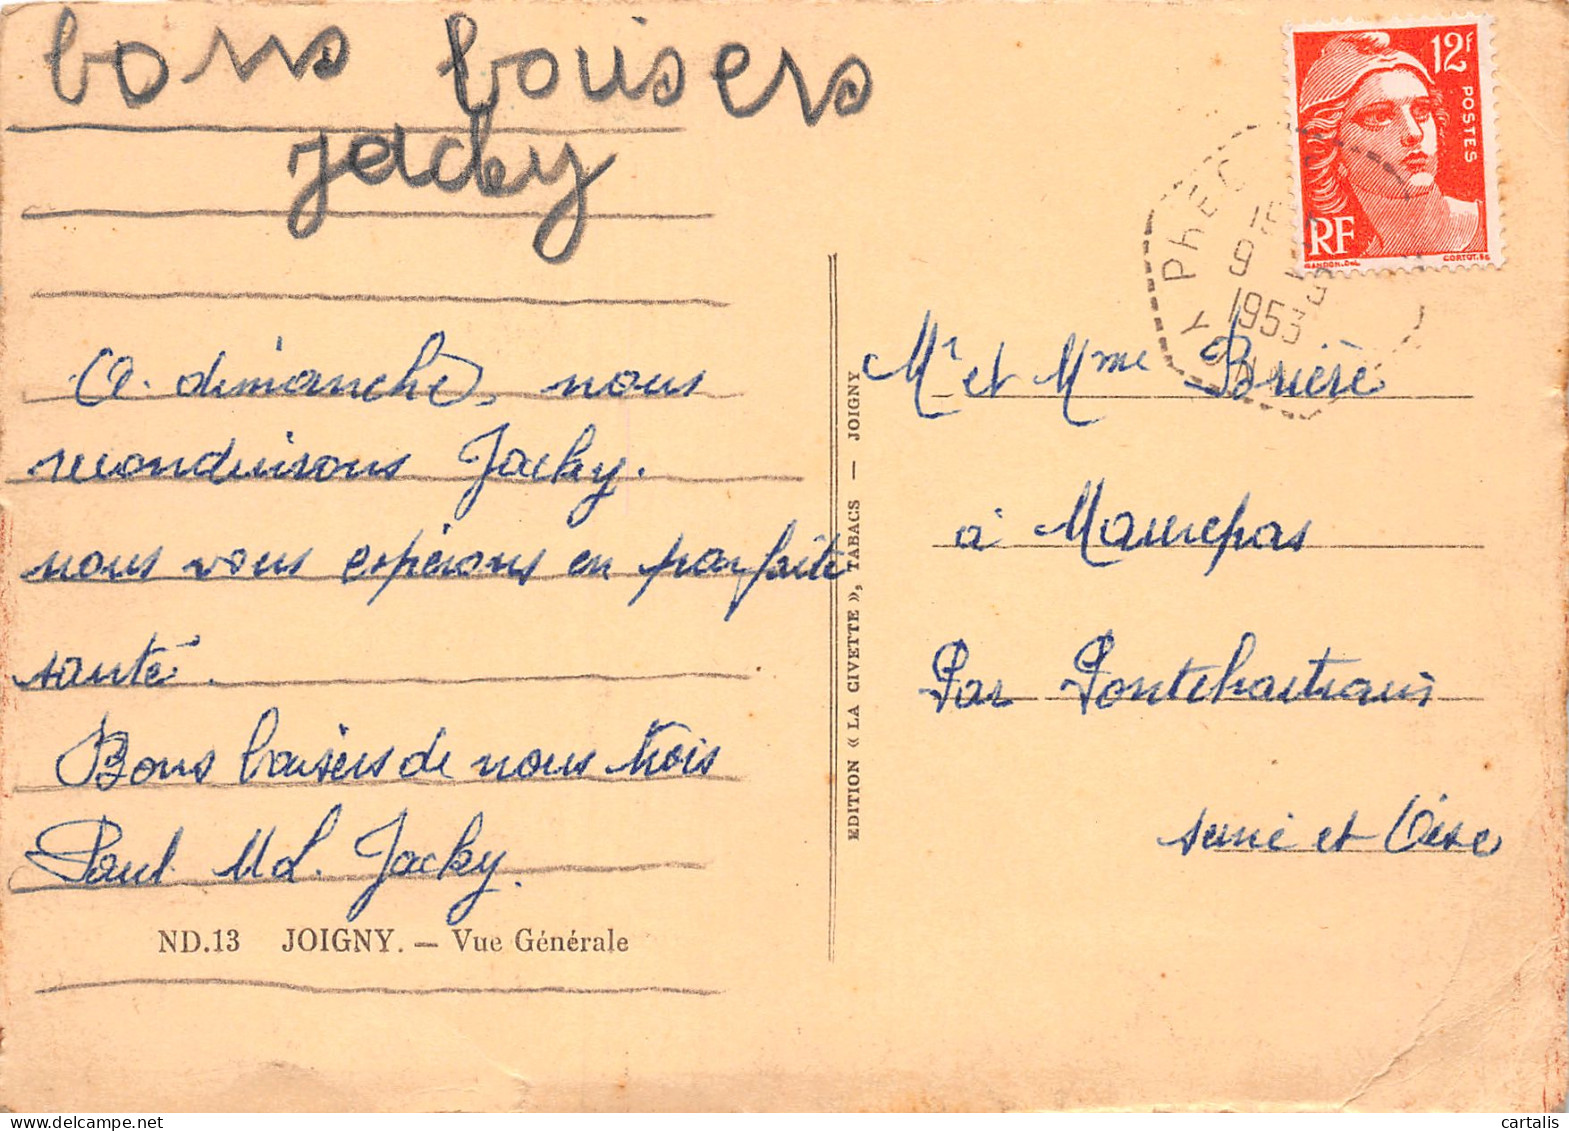 bons bousers
jacky
A dimanche, nous
reconduisons Jacky.
nous vous espérons en parfaite
santé.
Bons baisers de nous trois
Paul M L. Jacky.
ND.13 JOIGNY. — Vue Générale
EDITION « LA CIVETTE », TABACS — JOIGNY
12f
POSTES
RF
GANDON.DEL
CORTOT.SC
1953
Mr et Mme Brière
à Maurepas
Par Pontchartrain
seine et Oise
cartalis